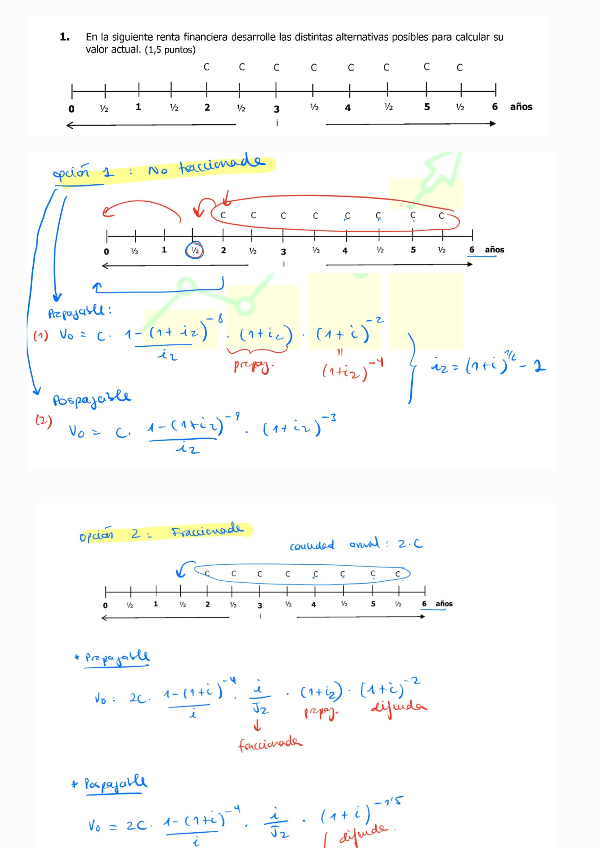 1. En la siguiente renta financiera desarrolle las distintas alternativas posibles para calcular su
valor actual. (1,5 puntos)
C C C C C C C C
0 ½ 1 ½ 2 ½ 3 ½ 4 ½ 5 ½ 6 años
i
opción 1 : No fraccionada
C C C C C C C C
0 ½ 1 ½ 2 ½ 3 ½ 4 ½ 5 ½ 6 años
i
Prepagable:
(1) V₀ = C · 1-(1+i₂)⁻⁸/i₂ · (1+i₂) · (1+i)⁻²
prepag. = (1+i₂)⁻⁴
i₂ = (1+i)^1/2 - 1
Pospagable
(2) V₀ = C · 1-(1+i₂)⁻⁸/i₂ · (1+i₂)⁻³
opción 2 : Fraccionada
cantidad anual : 2·C
C C C C C C C C
0 ½ 1 ½ 2 ½ 3 ½ 4 ½ 5 ½ 6 años
i
* Prepagable
V₀ : 2C · 1-(1+i)⁻⁴/i · i/J₂ · (1+i₂) · (1+i)⁻²
prepag. difunda
fraccionada
* Pospagable
V₀ = 2C · 1-(1+i)⁻⁴/i · i/J₂ · (1+i)^-1'5
difunde.